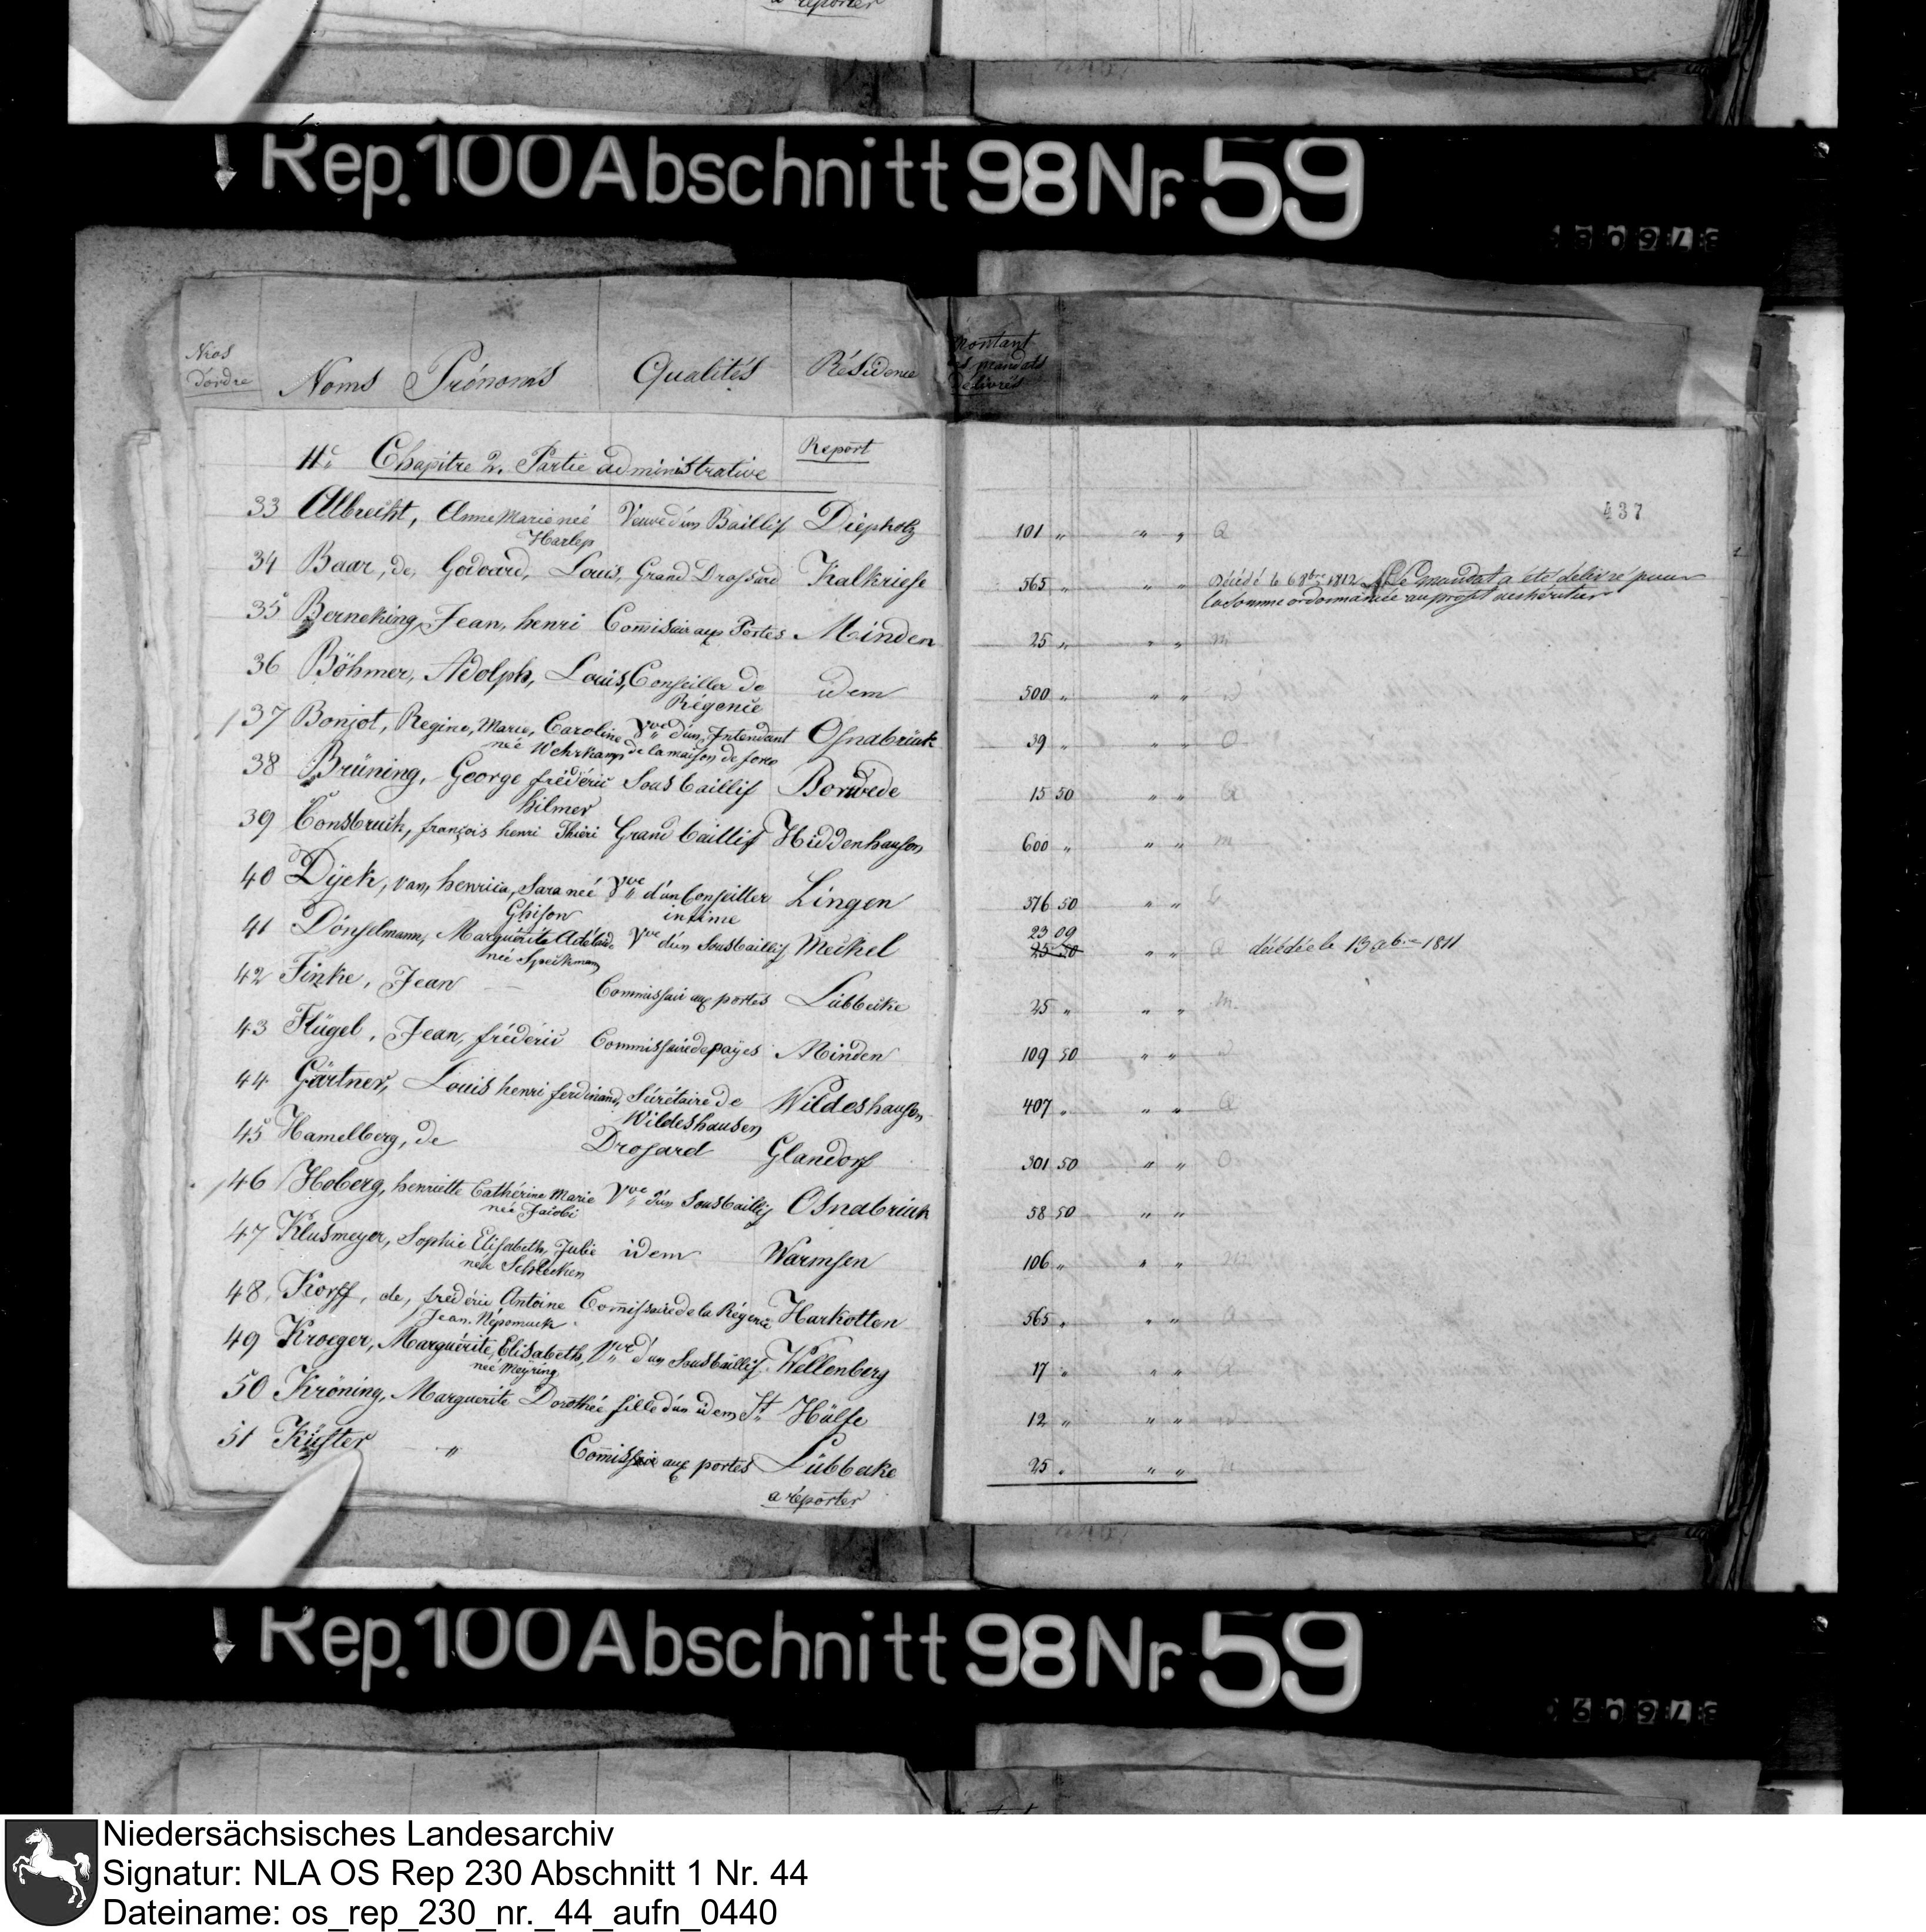 a réporter
Rep. 100 Abschnitt 98 Nr. 59
Nros d'ordre Noms Prénoms Qualités Résidence Montant des mandats délivrés
Report
IIe. Chapitre 2. Partie administrative
437
33 Albrecht, Anne Marie neé Harlep Veuve d'un Baillif Diepholz 101 " " " a
34 Baar, de, Godoard, Louis, Grand Drossard Kalkriese 565 " " " décédé le 6 8bre 1812. Le mandat a été délivré pour
la somme ordonnancée au profit des héritiers
35 Berneking, Jean, henri Comissair aux Portes Minden 25 " " " m
36 Böhmer, Adolph, Louis, Conseiller de Régence idem 500 " " " id
37 Bonjot, Regine, Marie, Caroline neé Wehrkamp Vve d'un Intendant de la maison de force Osnabrück 39 " " " O
38 Brüning, George fréderic hilmer Sous baillif Borwede 15 50 " " a
39 Consbruch, françois henri Thieri Grand baillif Hiddenhausen 600 " " " m
40 Dyck, van, henrica, Sara neé Ghison Vve d'un Conseiller intime Lingen 376 50 " "
23 09
41 Dönselmann, Marguérite Adélaide neé Speckmann Vve d'un Sousbaillif Meikel 25 50 " " a décédée le 13 1811
42 Finke, Jean Commissair aux portes Lübbecke 25 " " " m
43 Flügel, Jean, fréderic Commissaire de payes Minden 109 50 " " id
44 Gärtner, Louis henri ferdinand, Sécrétaire de Wildeshausen Wildeshausen 407 " " " a
45 Hamelberg, de Drosard Glandorf 301 50 " " O
46 Hoberg, henriette Cathérine Marie neé Jacobi Vve d'un Sousbaillif Osnabrück 58 50 " "
47 Klusmeyer, Sophie Elisabeth, Julie née Schlecken idem Warmsen 106 " " " m
48 Korff, de, fredéric Antoine Jean Népomuck Commissaire de la Régence Harkotten 565 " " " a
49 Kroeger, Marguérite, Elisabeth, neé Meyring Vve d'un Sousbaillif Wellenberg 17 " " " a
50 Kröning, Marguerite Dorothée fille d'un idem St. Hülfe 12 " " " id
51 Küster " Comissair aux portes Lübbecke 25 " " "
a réporter
Rep. 100 Abschnitt 98 Nr. 59
Niedersächsisches Landesarchiv
Signatur: NLA OS Rep 230 Abschnitt 1 Nr. 44
Dateiname: os_rep_230_nr._44_aufn_0440